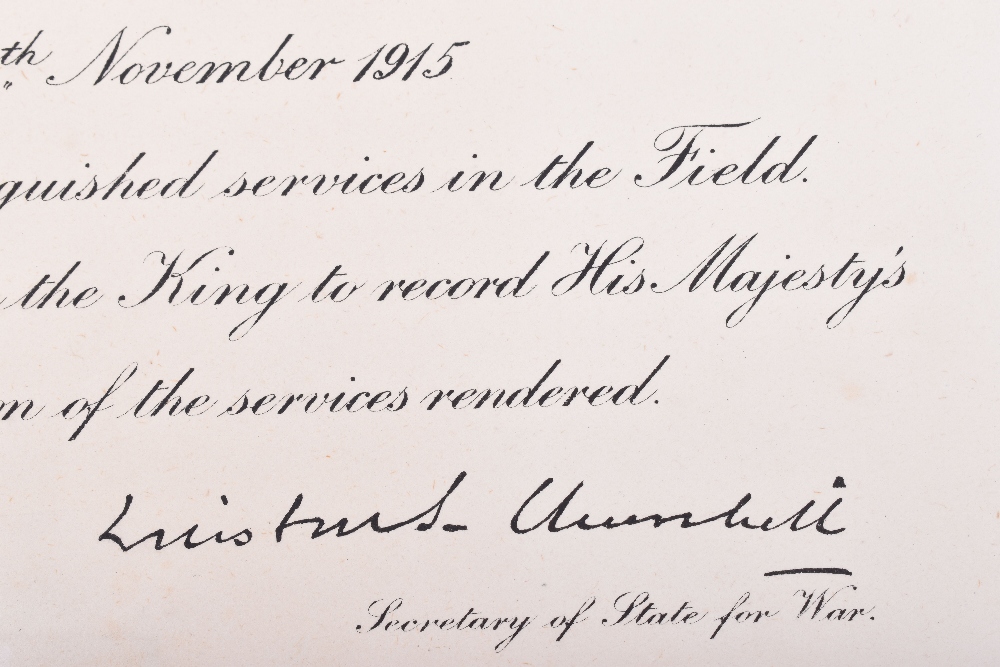 th November 1915
guished services in the Field.
the King to record His Majesty's
n of the services rendered.
Winston S. Churchill
Secretary of State for War.